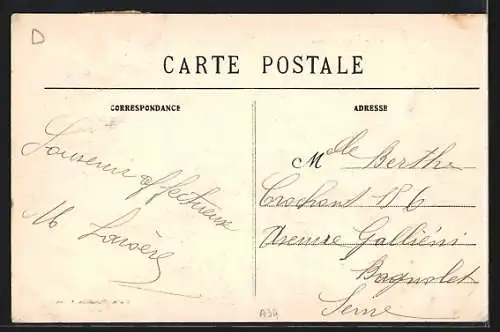 D
CARTE POSTALE
CORRESPONDANCE
Souvenir affectueux
M Larvère
ADRESSE
Mlle Berthe
Crochant 176
Avenue Galliéni
Bagnolet
Seine
A34